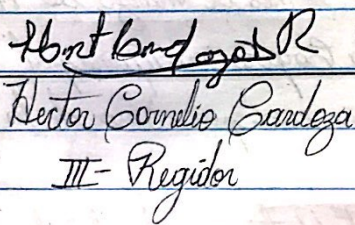 Hector Cornelio Cardoza
III- Regidor